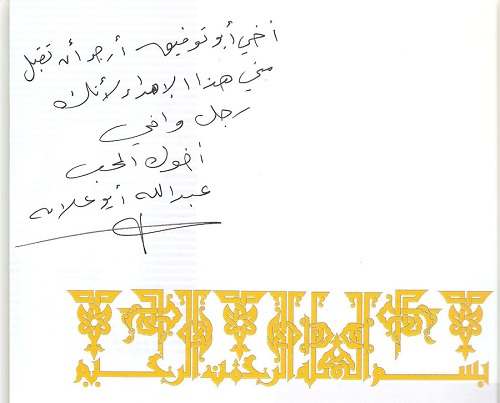 أخي أبو توفيق أرجو أن تقبل
مني هذا الإهداء لأنك
رجل وافي
أخوك المحب
عبدالله أبو علامه
بسم الله الرحمن الرحيم